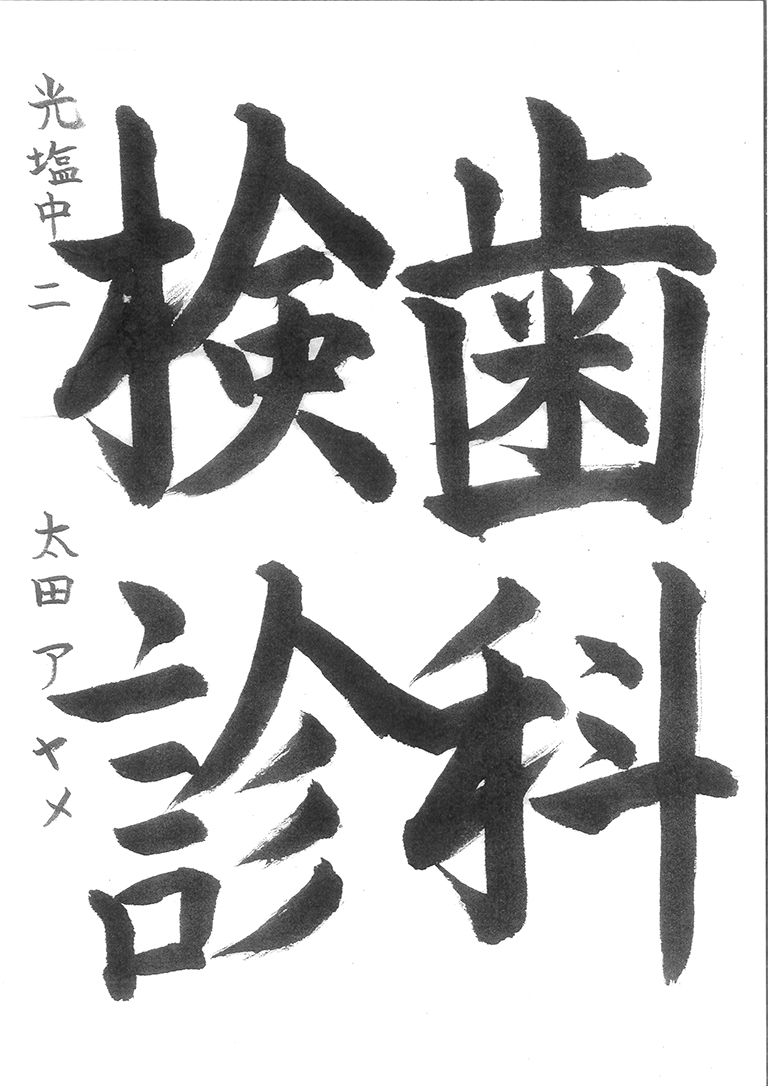 歯科
検診
光塩中二 太田アヤメ